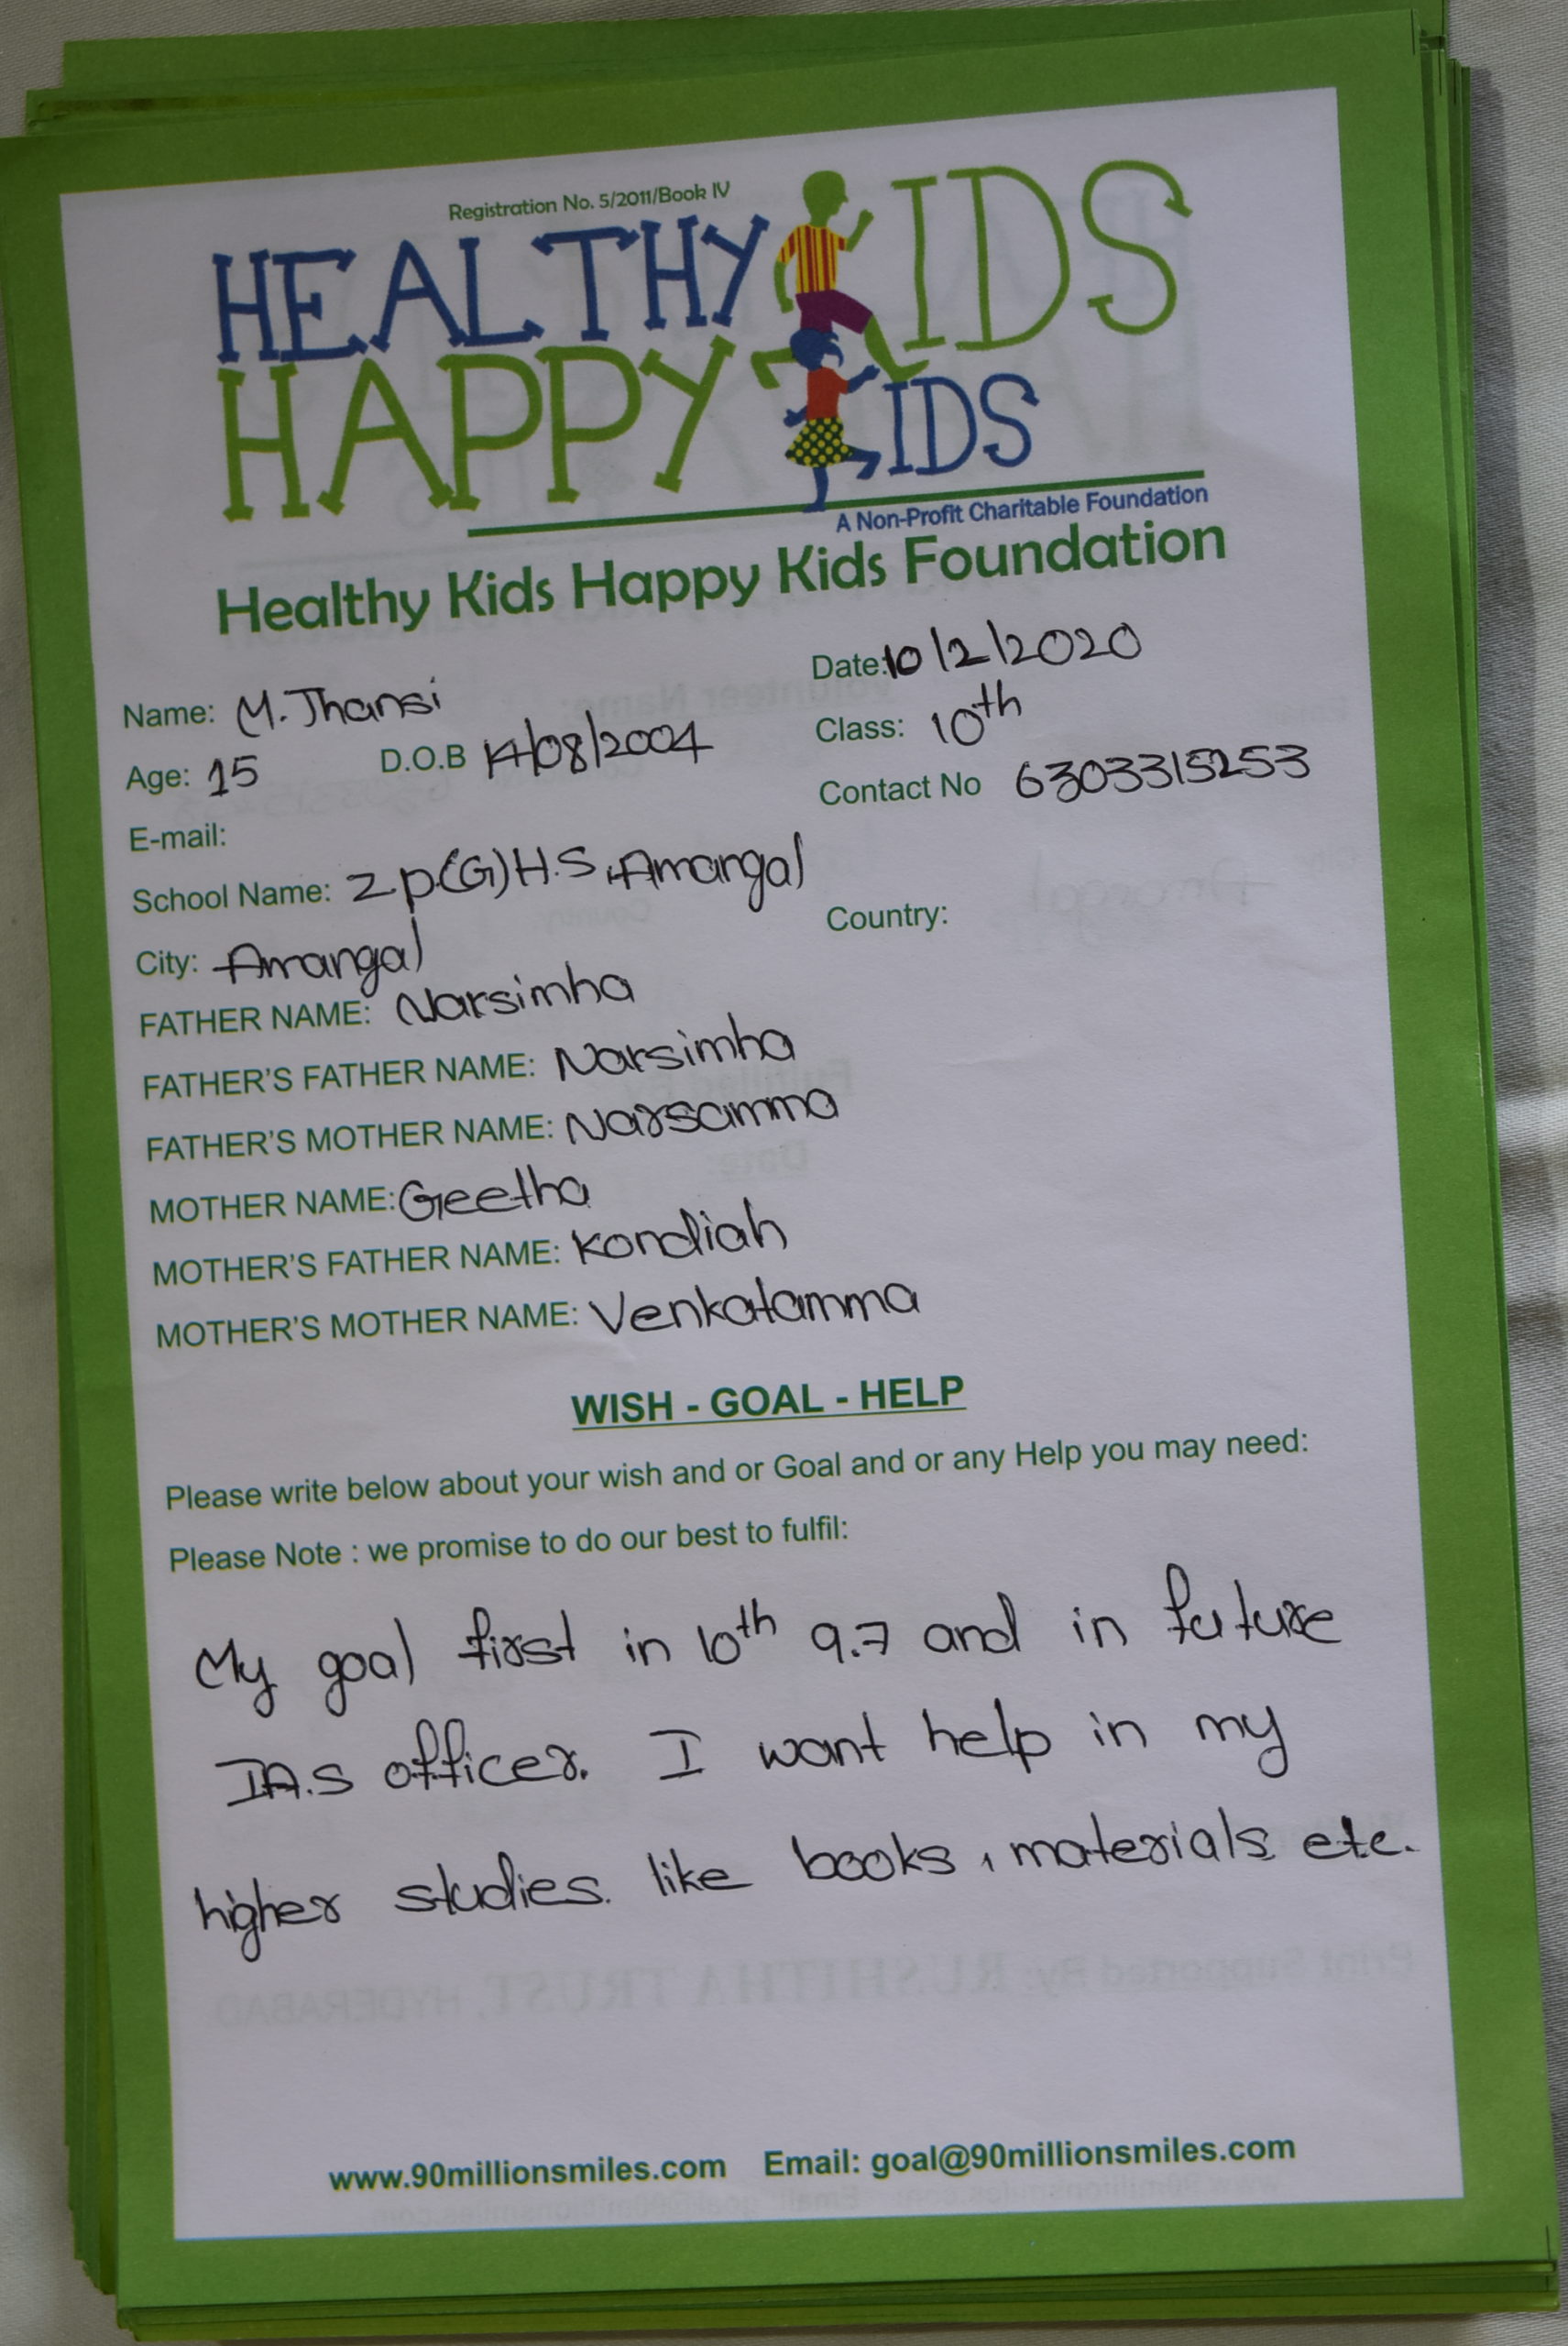 Registration No. 5/2011/Book IV
HEALTHY KIDS
HAPPY KIDS
A Non-Profit Charitable Foundation
Healthy Kids Happy Kids Foundation
Date: 10/2/2020
Name: M. Jhansi
Class: 10th
Age: 15 D.O.B 14/08/2004
Contact No 6303315253
E-mail:
School Name: Z.p.(G)H.S, Amangal
Country:
City: Amangal
FATHER NAME: Narsimha
FATHER'S FATHER NAME: Narsimha
FATHER'S MOTHER NAME: Narsamma
MOTHER NAME: Geetha
MOTHER'S FATHER NAME: Kondiah
MOTHER'S MOTHER NAME: Venkatamma
WISH - GOAL - HELP
Please write below about your wish and or Goal and or any Help you may need:
Please Note : we promise to do our best to fulfil:
My goal first in 10th 9.7 and in future
I.A.S officer. I want help in my
higher studies. like books, materials etc.
www.90millionsmiles.com Email: goal@90millionsmiles.com